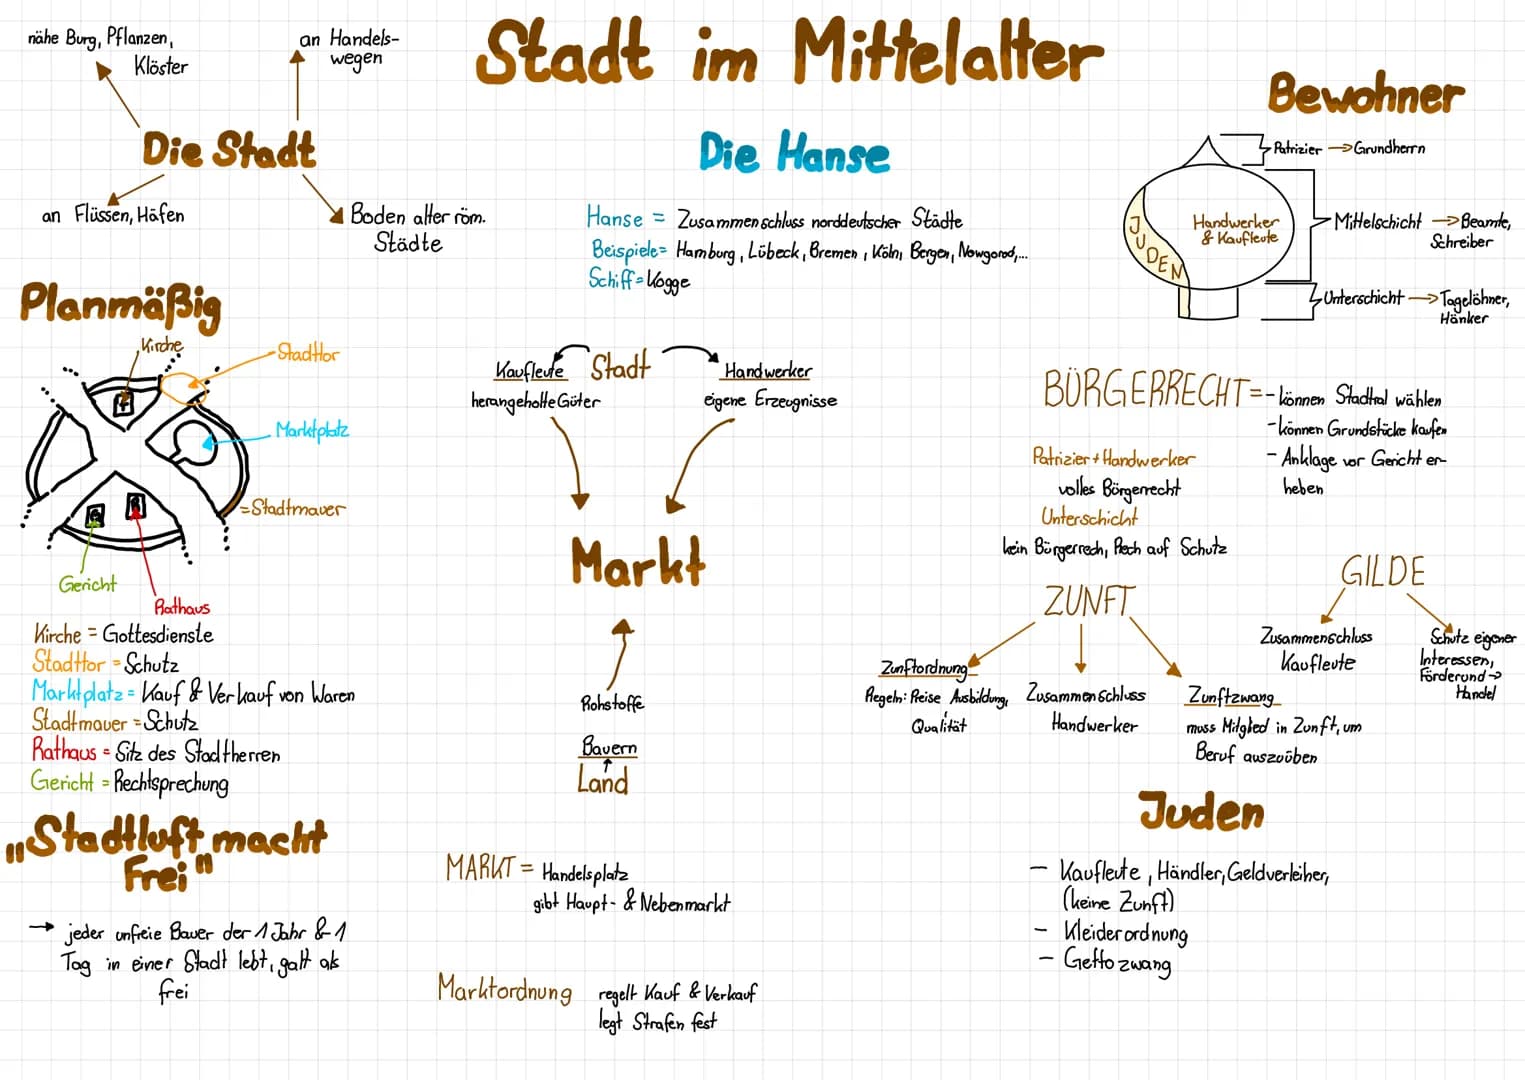 Stadt im Mittelalter
nähe Burg, Pflanzen,
Klöster
an Handels-
wegen
Die Stadt
an Flüssen, Häfen
Boden alter röm.
Städte
Planmäßig
Kirche
Stadttor
Marktplatz
= Stadtmauer
G
R
Gericht
Rathaus
Kirche = Gottesdienste
Stadttor = Schutz
Marktplatz = Kauf & Verkauf von Waren
Stadtmauer = Schutz
Rathaus = Sitz des Stadtherren
Gericht = Rechtsprechung
„Stadtluft macht
frei"
→ jeder unfreie Bauer der 1 Jahr & 1
Tag in einer Stadt lebt, galt als
frei
Die Hanse
Hanse = Zusammenschluss norddeutscher Städte
Beispiele = Hamburg, Lübeck, Bremen, Köln, Bergen, Nowgorod,...
Schiff = Kogge
Kaufleute Stadt Handwerker
herangeholte Güter
eigene Erzeugnisse
Markt
Rohstoffe
Bauern
Land
MARKT = Handelsplatz
gibt Haupt- & Nebenmarkt
Marktordnung regelt Kauf & Verkauf
legt Strafen fest
Bewohner
Patrizier → Grundherrn
JUDEN
Handwerker
& Kaufleute
Mittelschicht → Beamte,
Schreiber
Unterschicht → Tagelöhner,
Hänker
BÜRGERRECHT = - können Stadtrat wählen
- können Grundstücke kaufen
- Anklage vor Gericht er-
heben
Patrizier + Handwerker
volles Bürgerrecht
Unterschicht
kein Bürgerrech, Rech auf Schutz
ZUNFT
Zunftordnung
Regeln: Preise Ausbildung,
Qualität
Zusammenschluss
Handwerker
Zunftzwang
muss Mitglied in Zunft, um
Beruf auszuüben
GILDE
Zusammenschluss
Kaufleute
Schutz eigener
Interessen,
Förderund →
Handel
Juden
- Kaufleute, Händler, Geldverleiher,
(keine Zunft)
- Kleiderordnung
- Gettozwang